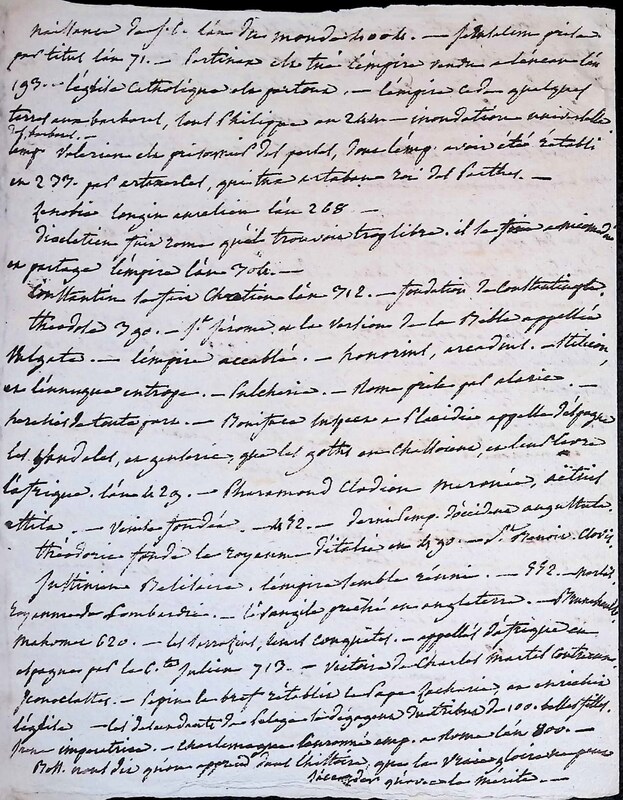 naissance de J. C. l'an du monde 4004. — Jerusalem prise
par titus l'an 71. — Pertinax est tué l'empire vendu a l'encan l'an
193. — l'église Catholique est partout. — l'empire cede quelques
terres aux barbares, sous Philippe en 244 — inondation universelle
des barbares. —
l'emp. Valerien est prisonnier des perses, dont l'emp. avoit été rétabli
en 233. par artaxerces, qui tua artaban roi des Parthes. —
Zenobie longin aurelien l'an 268 —
diocletien fuit rome qu'il trouvoit trop libre. il se fixe a nicomédie
en partage l'empire l'an 304. —
Constantin se fait Chretien l'an 312. — fondation de Constantinople.
théodose 390. — St. Jérome et la version de la Bible appellée
Vulgate. — l'empire accablé. — honorius, arcadius. — Stilicon,
et l'eunuque eutrope. — Pulcherie. — Rome prise par alaric. —
heresies de toute part. — Boniface suspect a Placidie appelle d'espagne
les Vandales, et genseric, que les goths en chassoient, et leur livre
l'afrique. l'an 429. — Pharamond Clodion merovée, aëtius
attila. — Venise fondée. — 452. — dernier emp. d'occident augustule.
théodoric fonde le royaume d'italie en 490. — St. Benoit. Clovis
Justinien Belisaire. l'empire semble réuni. — 552. — Narsès.
royaume de Lombardie. — l'evangile preché en angleterre. — Brunehault
mahomet 620. — les sarrasins, leurs conquêtes. — appellés d'afrique en
espagne par le Cte Julien 713. — victoire de Charles martel contre eux.
Iconoclastes. — Pepin le bref rétablit le Pape Zacharie, et enrichit
l'église — les descendants de Pelage se dégagent du tribut de 100. belles filles.
Irene imperatrice. — Charlemagne couronné emp. a Rome l'an 800. —
Boss. nous dit qu'on apprend dans l'histoire, que la vraie gloire ne peut
s'accorder qu'avec le mérite. —